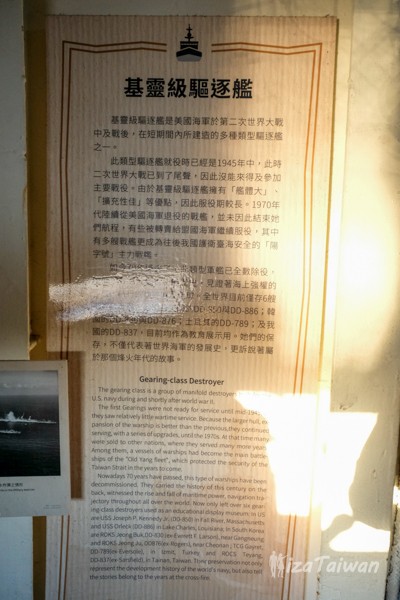 基靈級驅逐艦
基靈級驅逐艦是美國海軍於第二次世界大戰
中及戰後，在短期間內所建造的多種類型驅逐艦
之一。
此類型驅逐艦就役時已經是1945年中，此時
二次世界大戰已到了尾聲，因此沒能來得及參加
主要戰役。由於基靈級驅逐艦擁有「艦體大」、
「擴充性佳」等優點，因此服役期較長。1970年
代陸續從美國海軍退役的戰艦，並未因此結束她
們航程，有些被轉賣給盟國海軍繼續服役，其中
有多艘戰艦更成為往後我國護衛臺海安全的「陽
字號」主力戰艦。
類型軍艦已全數除役，
見證著海上強權的
全世界目前僅存6艘
DD-850與DD-886；韓
與DD-876；土耳其的DD-789；及我
國的DD-837，目前均作為教育展示用。她們的保
存，不僅代表著世界海軍的發展史，更訴說著屬
於那個烽火年代的故事。
Gearing-class Destroyer
The gearing class is a group of manifold destroyer
U.S. navy during and shortly after world war II.
The first Gearings were not ready for service until mid-1945
they saw relatively little wartime service. Because the larger hull, ex
pansion of the warship is better than the previous,they continued
serving, with a series of upgrades, until the 1970s. At that time many
were sold to other nations, where they served many more years.
Among them, a vessels of warships had become the main battle
ships of the "Old Yang fleet", which protected the security of the
Taiwan Strait in the years to come.
Nowadays 70 years have passed, this type of warships have been
decommissioned. They carried the history of this century on the
back, witnessed the rise and fall of maritime power, navigation tra
jectory throughout all over the world. Now only left over six gear
ing-class destroyers used as an educational display museum. In US
are USS Joseph P. Kennedy Jr. (DD-850) in Fall River, Massachusetts
and USS Orleck (DD-886) in Lake Charles, Louisiana. In South Korea
are ROKS Jeong Buk, DD-830 (ex-Everett F. Larson), near Gangneung
and ROKS Jeong Ju, (ex-Rogers), near
in Izmit, Turkey and ROCS Te Yang,
in Tainan, Taiwan. Their preservation not only
represent the development history of the world's navy, but also tell
the stories belong to the years at the cross-fire.
MizaTaiwan